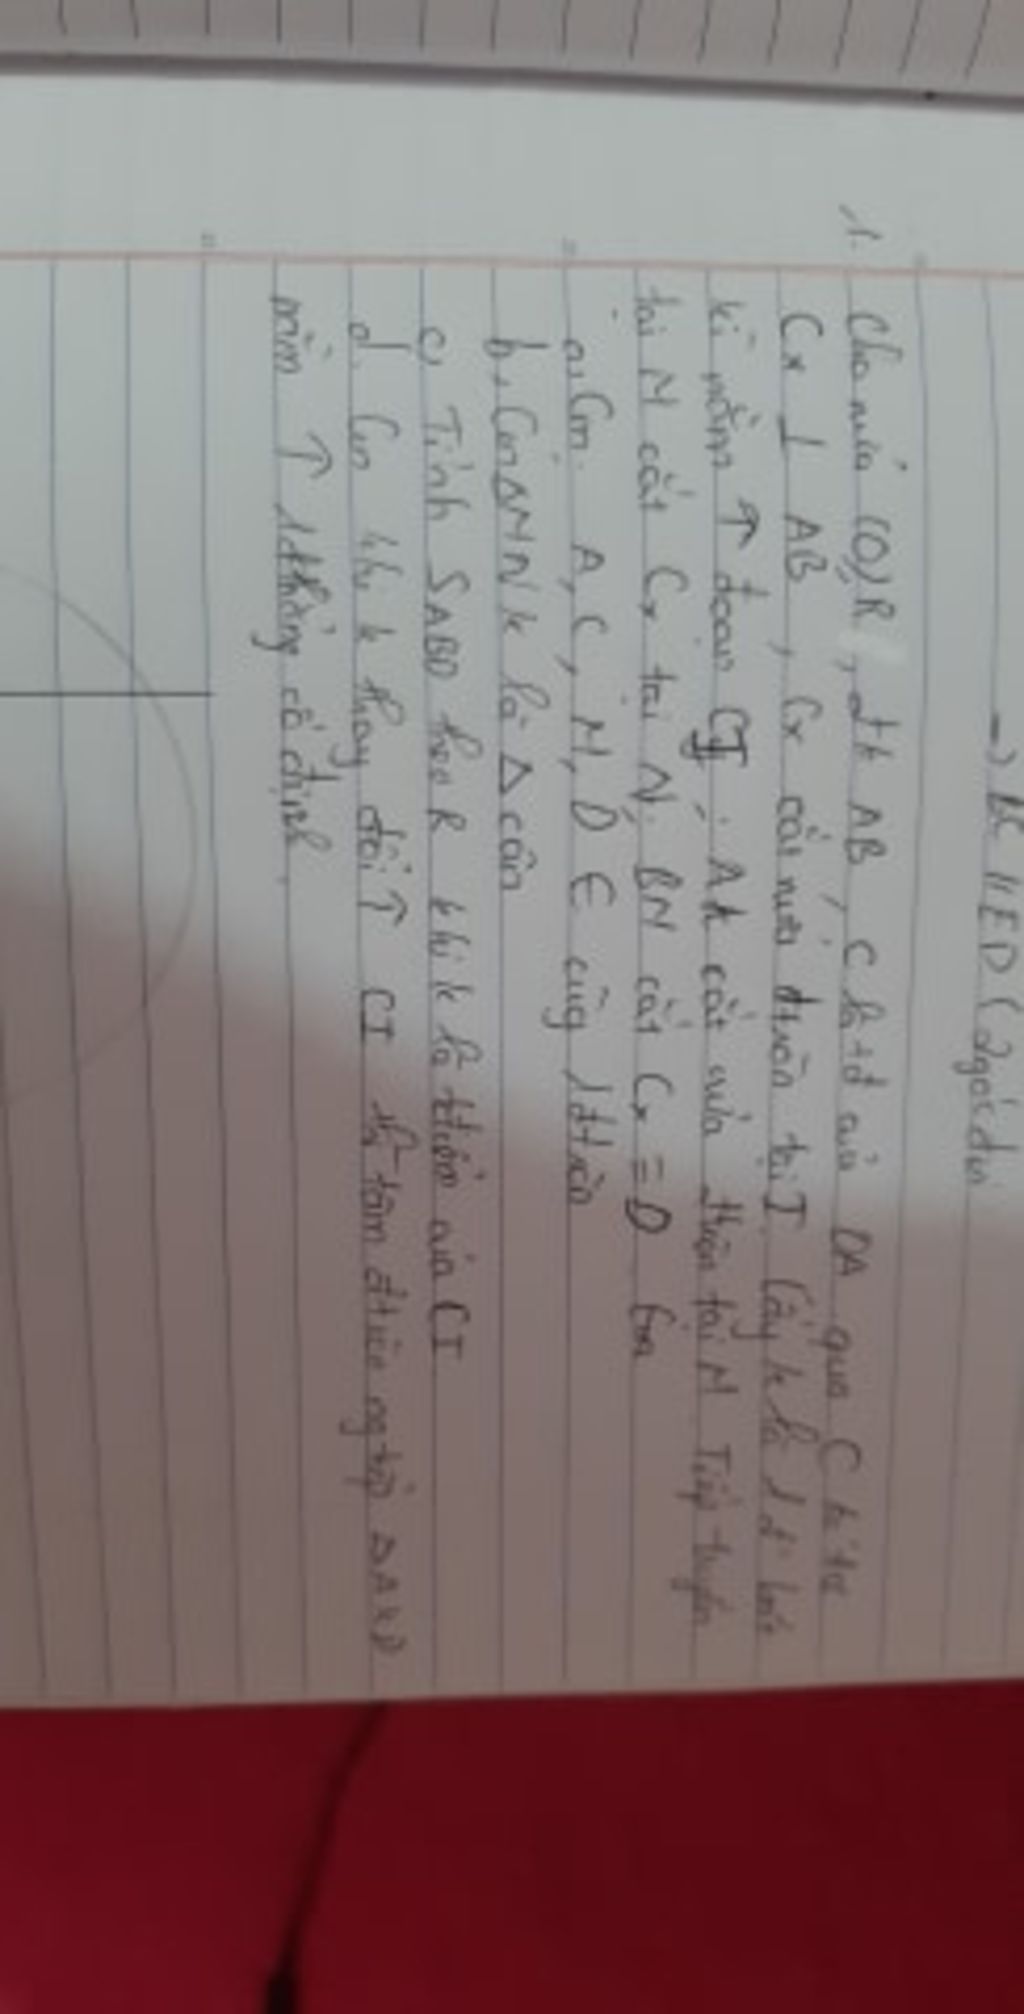 → BC // ED ( 2 góc
1. Cho nửa (O), R, đk AB, C là tđ của OA qua C kẻ tia
Cx ⊥ AB, Cx cắt nửa đtròn tại I. Lấy K là 1 đ' bất
kì nằm ↑ đoạn CI. AK cắt nửa đtròn tại M. Tiếp tuyến
tại M cắt Cx tại N, BM cắt Cx = D Cm
a, Cm. A, C, M, D ∈ cùng 1 đtròn
b, Cm ΔMNK là Δ cân
c, Tính SABD theo R khi K là tđiểm của CI
d, Cm khi K thay đổi ↑ CI thì tâm đtròn ng tiếp ΔAKD
nằm ↑ 1 đthẳng cố định.